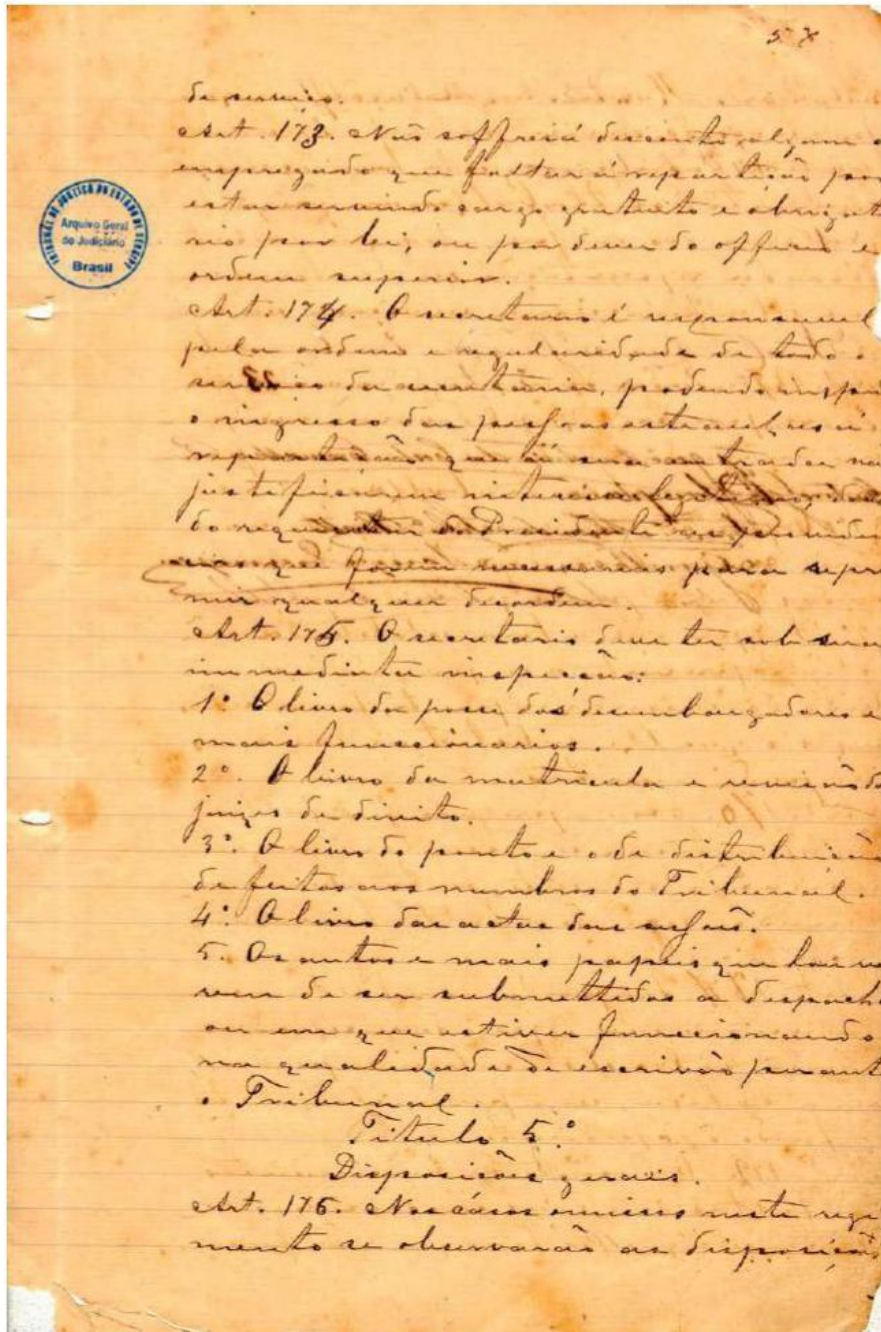 57
de serviço.
Art. 173. Não soffrerá desconto algum o
empregado que faltar á repartição por
estar servindo cargo gratuito e obrigat
rio por lei, ou por dever do officio e
ordem superior.
Art. 174. O secretario é responsavel
pela ordem e regularidade de todo o
serviço da secretaria, podendo
o ingresso das pessoas estranhas á
repartição que
justificarem
do requerer do Presidente as providen
cias que forem necessarias para repri
mir qualquer desordem.
Art. 175. O secretario deve ter sob sua
immediata inspecção:
1º O livro da posse dos desembargadores e
mais funccionarios.
2º. O livro da matricula e revisão de
juizes de direito.
3º. O livro do ponto e o de distribuição
de feitos aos membros do Tribunal.
4º. O livro das actas das sessões.
5. Os autos e mais papeis que houve
rem de ser submettidos a despacho
ou em que estiver funccionando
na qualidade de escrivão perant
o Tribunal.
Titulo 5º
Disposições geraes.
Art. 176. Nos casos omissos neste regi
mento se observarão as disposiçõe
TRIBUNAL DE JUSTIÇA DO ESTADO DE SERGIPE
Arquivo Geral
do Judiciário
Brasil